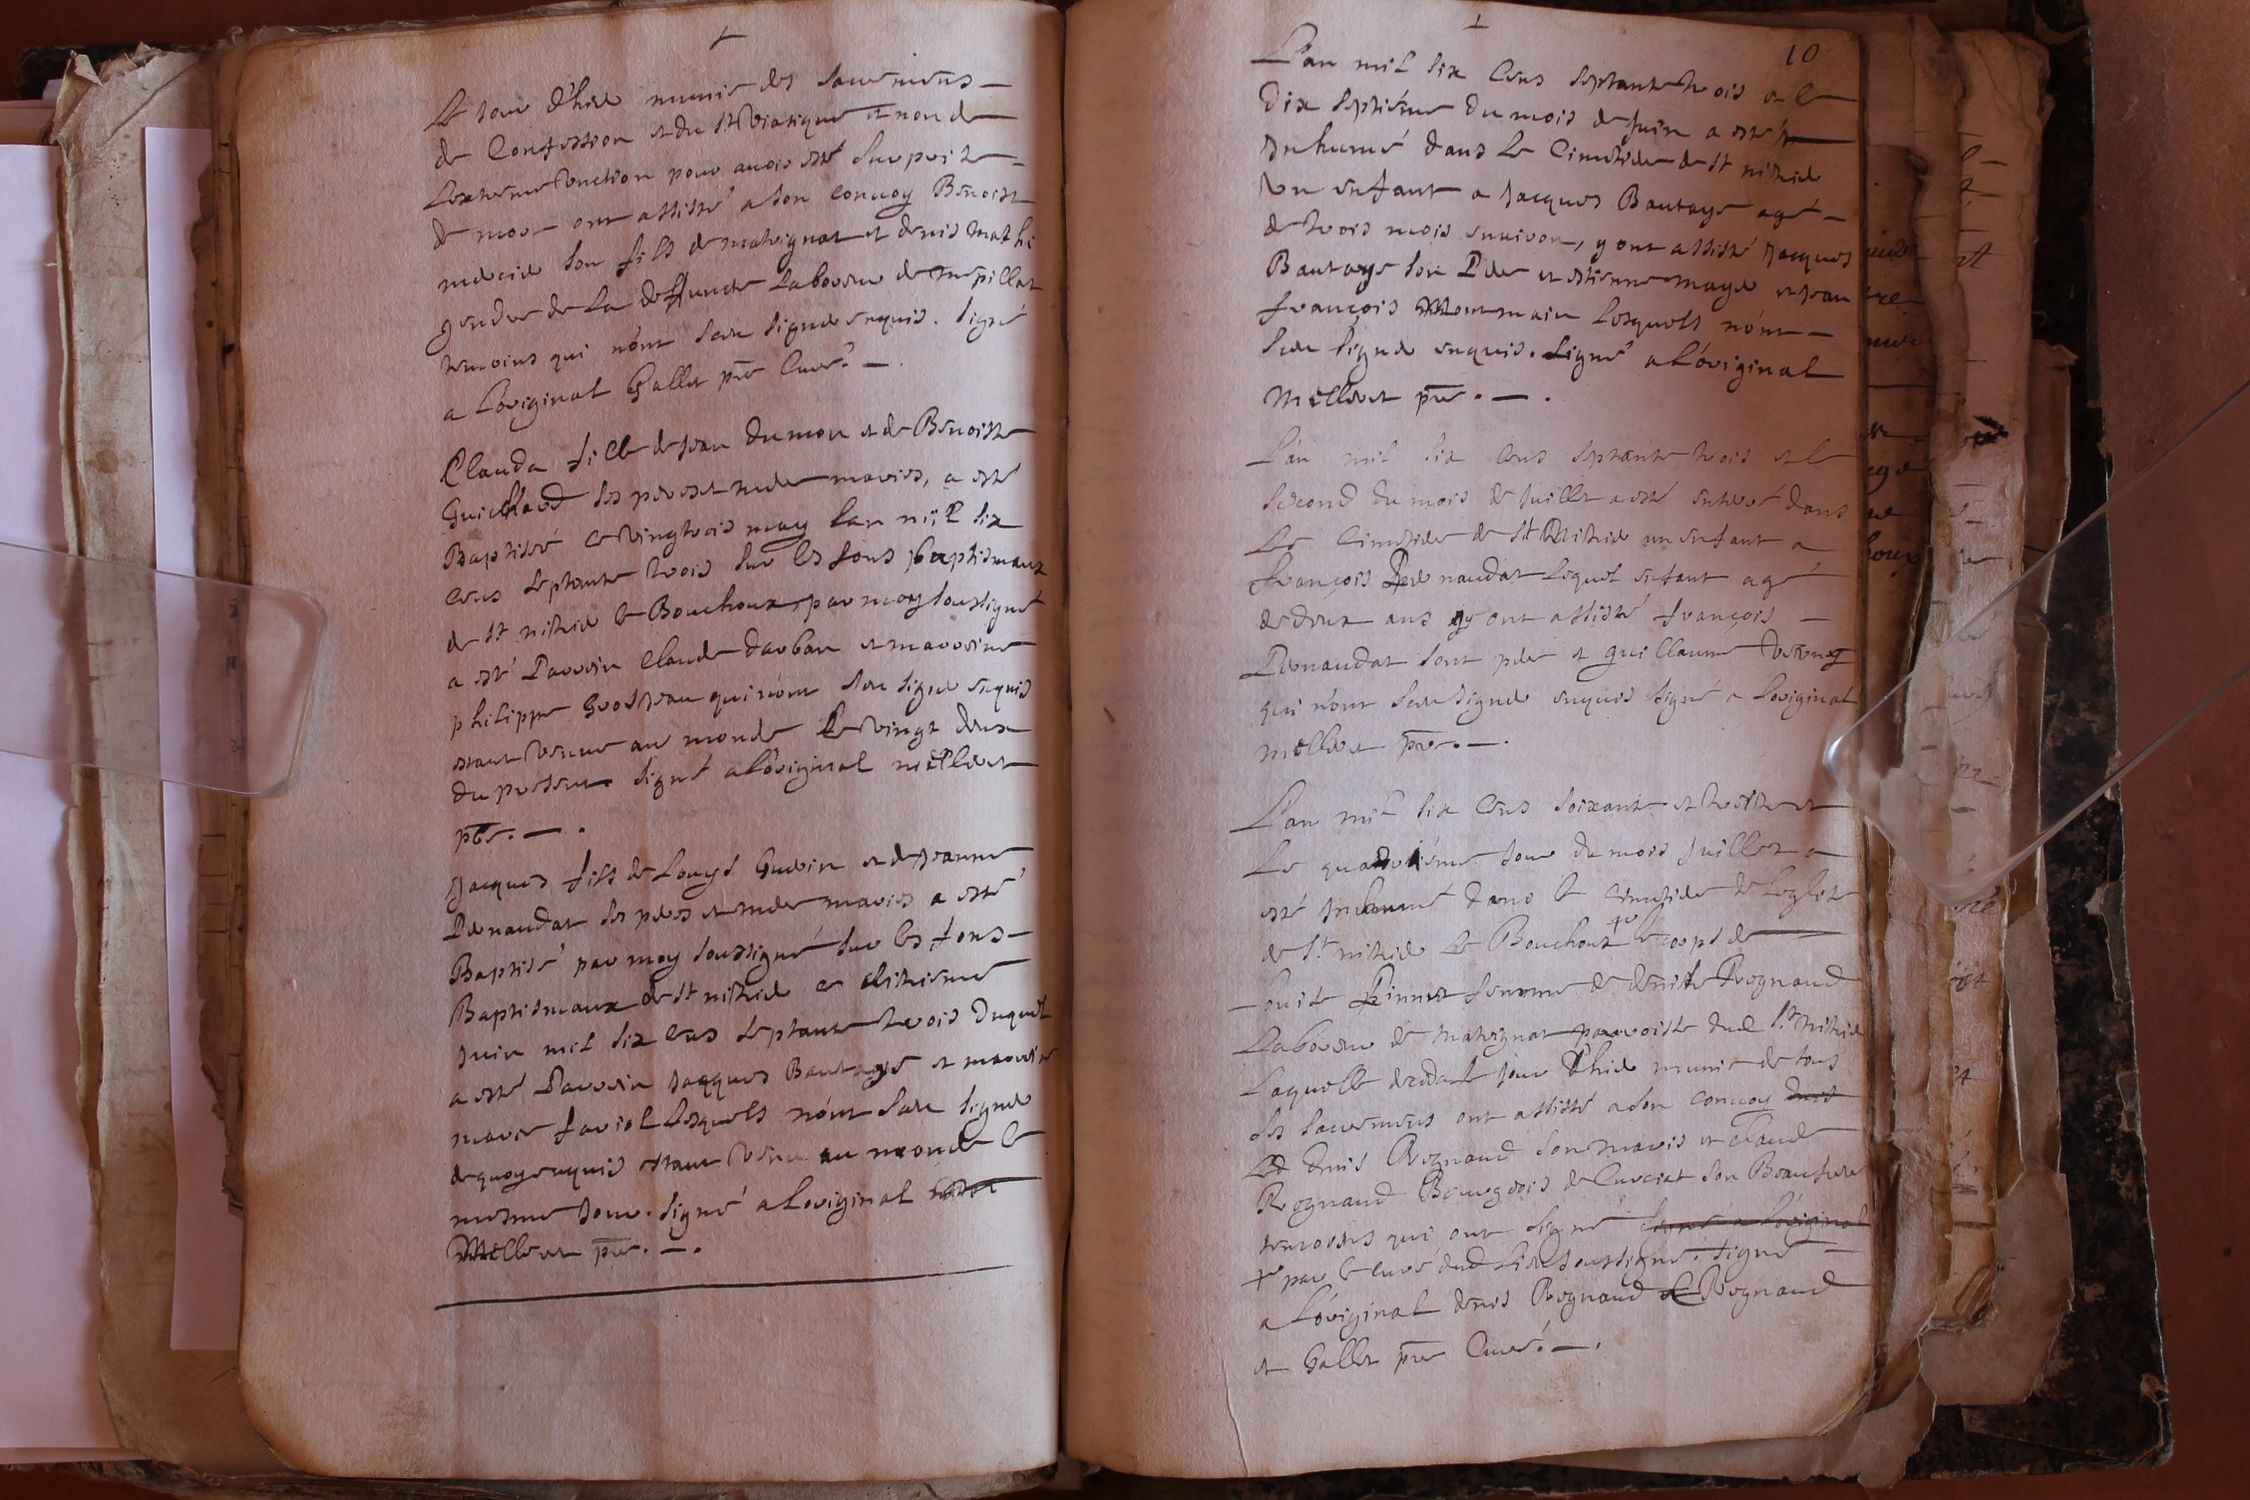 Le jour d'hier munie des sacremens
de Confession et du St Viatique et non de
Lextreme Unction pour avoir esté surprise
de mort ont assisté a son convoy Benoist
mercier son fils de matregnat et denis mathi
gendre de La deffuncte Laboureur de mepillat
temoins qui nont sceu signer enquis. signé
a Loriginal Gallet pre Curé.
Clauda fille de Jean Dumon et de Benoiste
Guichard ses pere et mere maries, a esté
Baptisée ce vingtrois may Lan mil six
cens septante trois sur les fons baptismaux
de St nisier le Bouchoux, par moy soussigné
a esté Parrein Claude darban et marreine
philippe Grosjean qui nont sceu signer enquis
estant venue au monde Le vingt deux
du present signé a Loriginal meilleret
pre.
Jacques fils de Louys Guerin et de Jeanne
Pernaudat ses peres et mere maries a esté
Baptisé par moy soussigné sur les fons
Baptismaux de St nisier ce
Juin mil six cens septante trois Duquel
a esté Parrein Jacques Bautage et marreine
marie faviel Lesquels nont sceu signer
de quoy enquis estant venu au monde le
mesme jour. signé a Loriginal
Meilleret pre.
10
L'an mil six Cens septante trois et le
dix septiéme du mois de Juin a esté
Inhumé dans Le Cimetiere de St nisier
un enfant a Jacques Bautage agé
de trois mois environ, y ont assisté Jacques
Bautage son Pere et estienne maye et Jean
françois Montmain Lesquels n'ont
sceu signer enquis. signé a Loriginal
Meilleret pre.
L'an mil six cens septante trois et le
second du mois de Juillet a esté enterré dans
Le Cimetiere de St Nisier un enfant a
François Pernaudat Lequel enfant agé
de deux ans y ont assisté françois
Pernaudat sont pere et guillaume
qui n'ont sceu signer enquis signé a Loriginal
meilleret pre.
L'an mil six Cens soixante et treiste et
Le quatriéme jour du mois Juillet a
esté Inhumé dans le cimetiere de Leglise
de St nisier Le Bouchoux le corps de
Louise Pinnet femme de denis Rognaud
Laboureur de Matregnat parroisse dud St Nisier
Laquelle deceda le jour d'hier munie de tous
ses sacremens ont assisté a son convoy
Led denis Rognaud son maris et claude
Rognaud Bourgeois de Curciat son Beaufrere
temoins qui ont signé signé a Loriginal
par le curé dud Lieu soussigné. signé
a Loriginal denis Rognaud C Rognaud
et Gallet pre Curé.